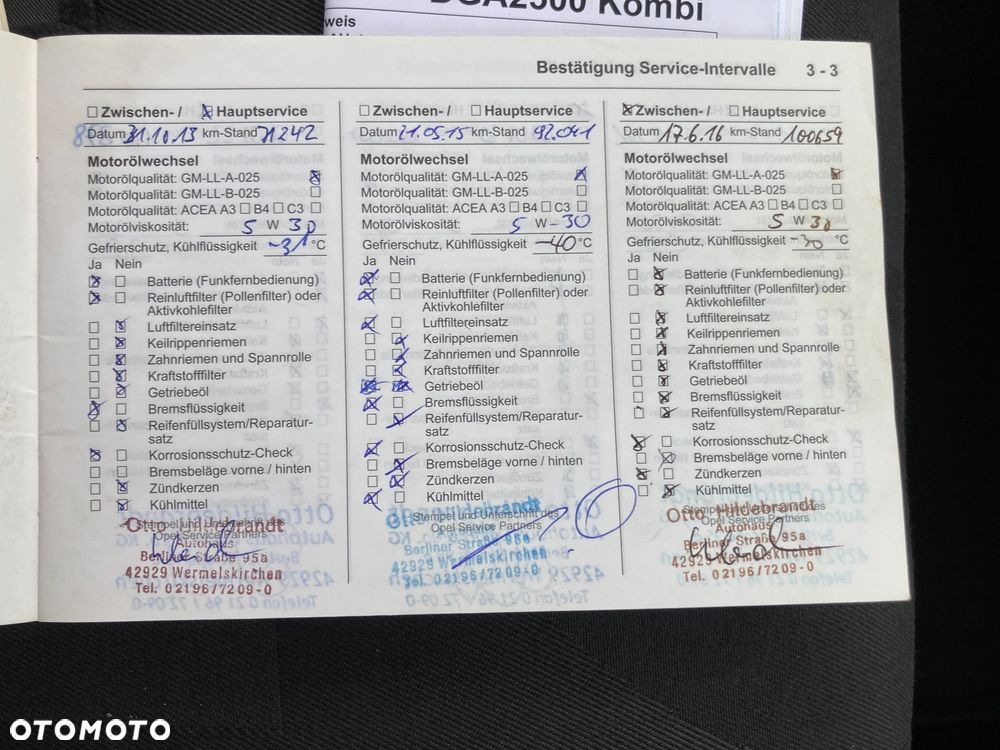 DGA2500 Kombi
weis
Bestätigung Service-Intervalle 3 - 3
Zwischen- / Hauptservice
Datum 31.10.13 km-Stand 71242
Motorölwechsel
Motorölqualität: GM-LL-A-025
Motorölqualität: GM-LL-B-025
Motorölqualität: ACEA A3 B4 C3
Motorölviskosität: 5 W 30
Gefrierschutz, Kühlflüssigkeit -31 °C
Ja Nein
Batterie (Funkfernbedienung)
Reinluftfilter (Pollenfilter) oder
Aktivkohlefilter
Luftfiltereinsatz
Keilrippenriemen
Zahnriemen und Spannrolle
Kraftstofffilter
Getriebeöl
Bremsflüssigkeit
Reifenfüllsystem/Reparatur-
satz
Korrosionsschutz-Check
Bremsbeläge vorne / hinten
Zündkerzen
Kühlmittel
Otto Hildebrandt
Stempel und Unterschrift des
Opel Service Partners
Autohaus
Berliner Straße 95a
42929 Wermelskirchen
Tel. 02196/7209-0
Zwischen- / Hauptservice
Datum 21.05.15 km-Stand 92.091
Motorölwechsel
Motorölqualität: GM-LL-A-025
Motorölqualität: GM-LL-B-025
Motorölqualität: ACEA A3 B4 C3
Motorölviskosität: 5 W -30
Gefrierschutz, Kühlflüssigkeit -40 °C
Ja Nein
Batterie (Funkfernbedienung)
Reinluftfilter (Pollenfilter) oder
Aktivkohlefilter
Luftfiltereinsatz
Keilrippenriemen
Zahnriemen und Spannrolle
Kraftstofffilter
Getriebeöl
Bremsflüssigkeit
Reifenfüllsystem/Reparatur-
satz
Korrosionsschutz-Check
Bremsbeläge vorne / hinten
Zündkerzen
Kühlmittel
Stempel und Unterschrift des
Opel Service Partners
Berliner Straße 95a
42929 Wermelskirchen
Tel. 02196/7209-0
Zwischen- / Hauptservice
Datum 17.6.16 km-Stand 100659
Motorölwechsel
Motorölqualität: GM-LL-A-025
Motorölqualität: GM-LL-B-025
Motorölqualität: ACEA A3 B4 C3
Motorölviskosität: 5 W 30
Gefrierschutz, Kühlflüssigkeit -30 °C
Ja Nein
Batterie (Funkfernbedienung)
Reinluftfilter (Pollenfilter) oder
Aktivkohlefilter
Luftfiltereinsatz
Keilrippenriemen
Zahnriemen und Spannrolle
Kraftstofffilter
Getriebeöl
Bremsflüssigkeit
Reifenfüllsystem/Reparatur-
satz
Korrosionsschutz-Check
Bremsbeläge vorne / hinten
Zündkerzen
Kühlmittel
Otto Hildebrandt
Stempel und Unterschrift des
Opel Service Partners
Autohaus
Berliner Straße 95a
42929 Wermelskirchen
Tel. 02196/7209-0
OTOMOTO